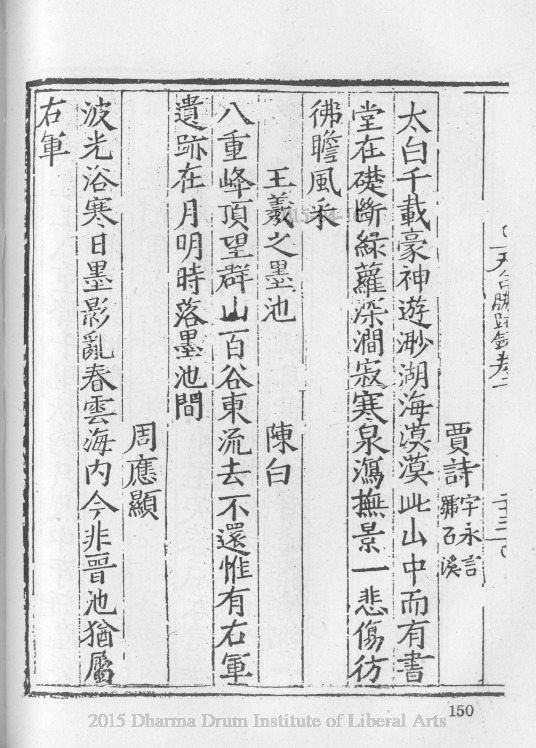 天台勝蹟錄卷二
二十三
賈詩 字永言 號石溪
太白千載豪神遊渺湖海漠漠此山中而有書
堂在礎斷綠蘿深澗寂寒泉瀉撫景一悲傷彷
彿瞻風采
王羲之墨池 陳白
八重峰頂望群山百谷東流去不還惟有右軍
遺跡在月明時落墨池間
周應顯
波光浴寒日墨影亂春雲海內今非晉池猶屬
右軍
150
2015 Dharma Drum Institute of Liberal Arts